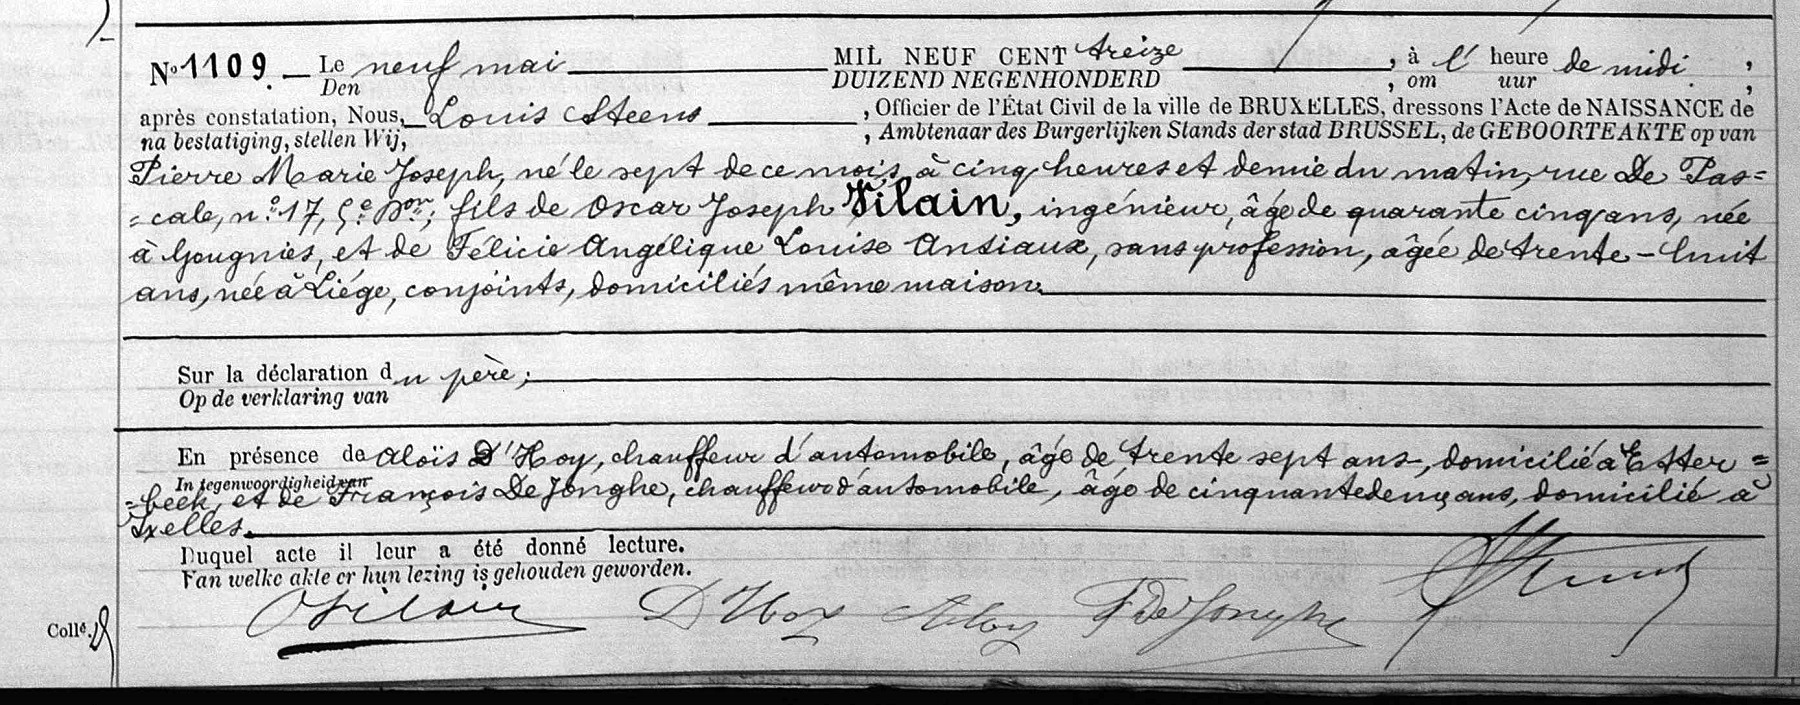 No 1109. Le neuf mai MIL NEUF CENT treize, à l' heure de midi,
Den DUIZEND NEGENHONDERD, om uur,
après constatation, Nous, Louis Steens, Officier de l'État Civil de la ville de BRUXELLES, dressons l'Acte de NAISSANCE de
na bestatiging, stellen Wij, , Ambtenaar des Burgerlijken Stands der stad BRUSSEL, de GEBOORTEAKTE op van
Pierre Marie Joseph, né le sept de ce mois, à cinq heures et demie du matin, rue De Pas=
=cale, n° 17, 5e Don; fils de Oscar Joseph Vilain, ingénieur, âgé de quarante cinq ans, née
à Gougnies, et de Félicie Angélique Louise Ansiaux, sans profession, âgée de trente-huit
ans, née à Liége, conjoints, domiciliés même maison.
Sur la déclaration du père;
Op de verklaring van
En présence de Aloïs D'Hoy, chauffeur d'automobile, âgé de trente sept ans, domicilié à Etter=
In tegenwoordigheid van
=beek, et de François De Jonghe, chauffeur d'automobile, âgé de cinquante deux ans, domicilié à
Ixelles.
Duquel acte il leur a été donné lecture.
Van welke akte er hun lezing is gehouden geworden.
OVilain D'Hoy Aloïs F De Jonghe
Collé.